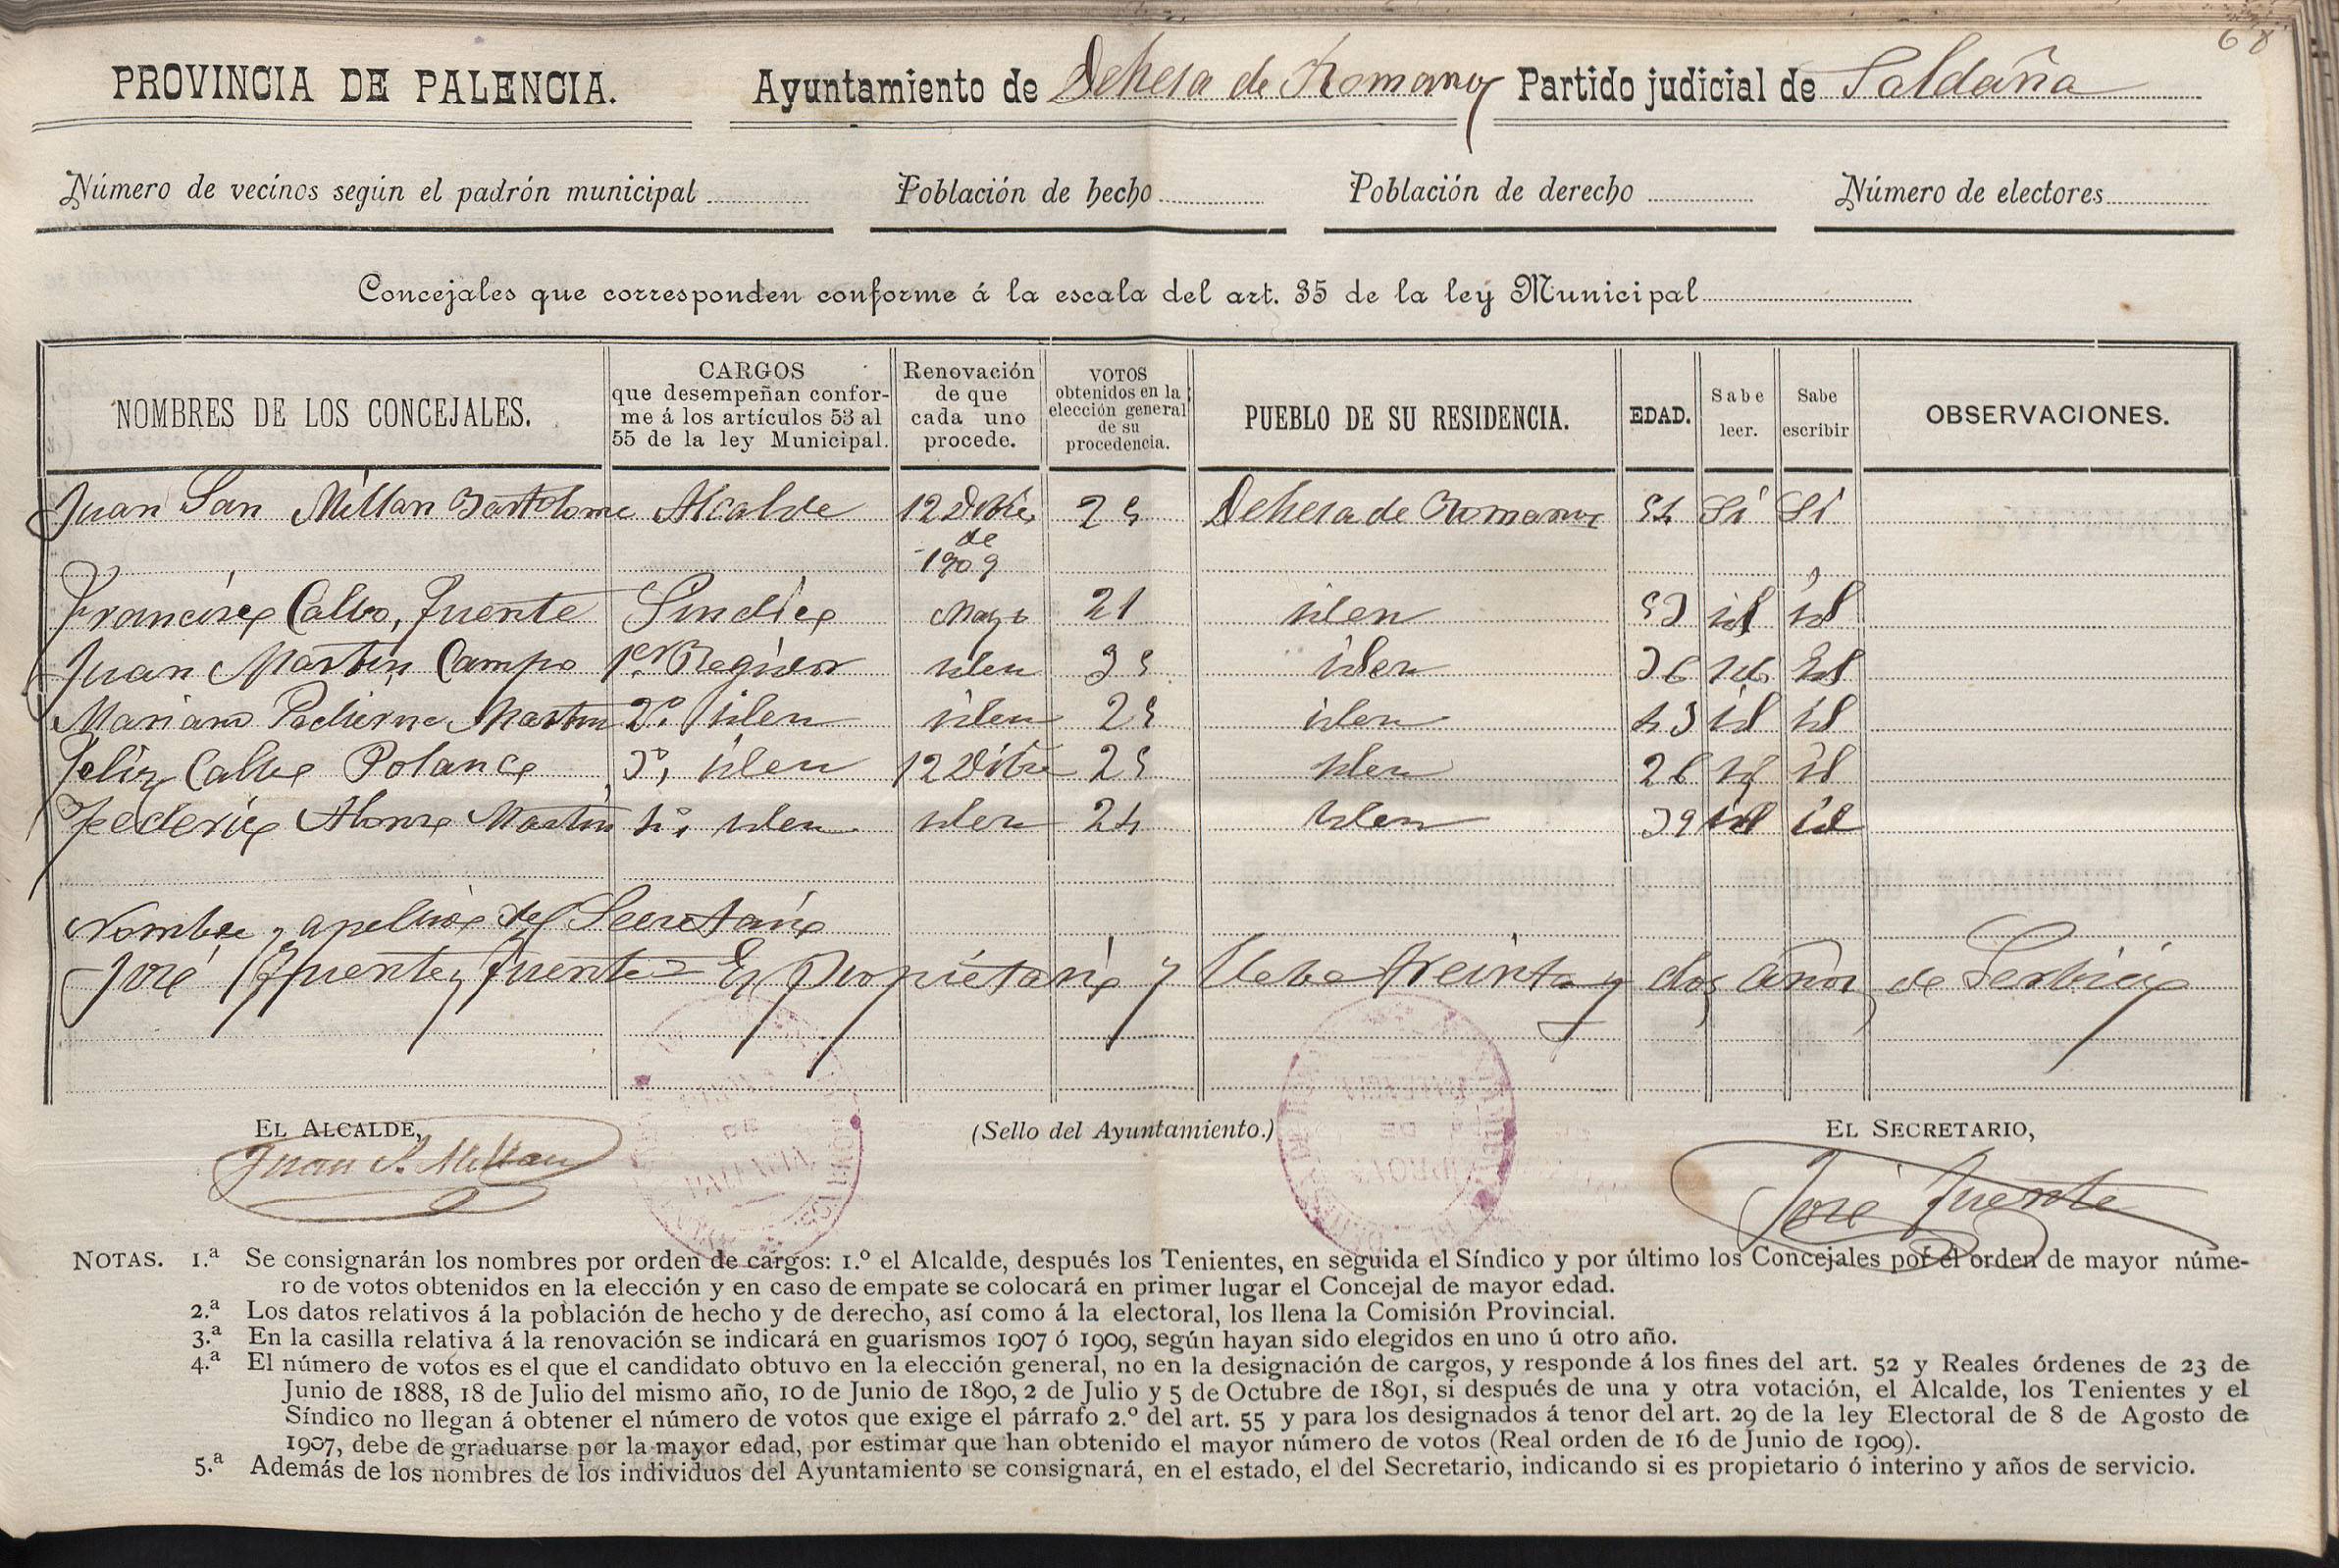 68
PROVINCIA DE PALENCIA. Ayuntamiento de Dehesa de Romanos Partido judicial de Saldaña
Número de vecinos según el padrón municipal Población de hecho Población de derecho Número de electores
Concejales que corresponden conforme á la escala del art. 35 de la ley Municipal
NOMBRES DE LOS CONCEJALES. CARGOS que desempeñan conforme á los artículos 53 al 55 de la ley Municipal. Renovación de que cada uno procede. VOTOS obtenidos en la elección general de su procedencia. PUEBLO DE SU RESIDENCIA. EDAD. Sabe leer. Sabe escribir OBSERVACIONES.
Juan San Millan Bartolome Alcalde 12 Dbre de 1909 25 Dehesa de Romanos 54 Si Si
Francisco Calvo Fuente Sindico Mayo 21 iden 53 id id
Juan Martin Campo 1er Regidor iden 35 iden 36 id id
Mariano Martin 2º iden iden 25 iden 43 id id
Feliz Calbo Polanco 3º iden 12 Dibre 25 iden 26 id id
Federico Alonso Martin 4º iden iden 24 iden 39 id id
Nombre y apellido del Secretario
José Fuente Fuente = Es propietario y lleba treinta y dos años de Serbicio
EL ALCALDE, (Sello del Ayuntamiento.) EL SECRETARIO,
Juan S. Millan José Fuente
NOTAS. 1.ª Se consignarán los nombres por orden de cargos: 1.º el Alcalde, después los Tenientes, en seguida el Síndico y por último los Concejales por el orden de mayor núme-
ro de votos obtenidos en la elección y en caso de empate se colocará en primer lugar el Concejal de mayor edad.
2.ª Los datos relativos á la población de hecho y de derecho, así como á la electoral, los llena la Comisión Provincial.
3.ª En la casilla relativa á la renovación se indicará en guarismos 1907 ó 1909, según hayan sido elegidos en uno ú otro año.
4.ª El número de votos es el que el candidato obtuvo en la elección general, no en la designación de cargos, y responde á los fines del art. 52 y Reales órdenes de 23 de
Junio de 1888, 18 de Julio del mismo año, 10 de Junio de 1890, 2 de Julio y 5 de Octubre de 1891, si después de una y otra votación, el Alcalde, los Tenientes y el
Síndico no llegan á obtener el número de votos que exige el párrafo 2.º del art. 55 y para los designados á tenor del art. 29 de la ley Electoral de 8 de Agosto de
1907, debe de graduarse por la mayor edad, por estimar que han obtenido el mayor número de votos (Real orden de 16 de Junio de 1909).
5.ª Además de los nombres de los individuos del Ayuntamiento se consignará, en el estado, el del Secretario, indicando si es propietario ó interino y años de servicio.